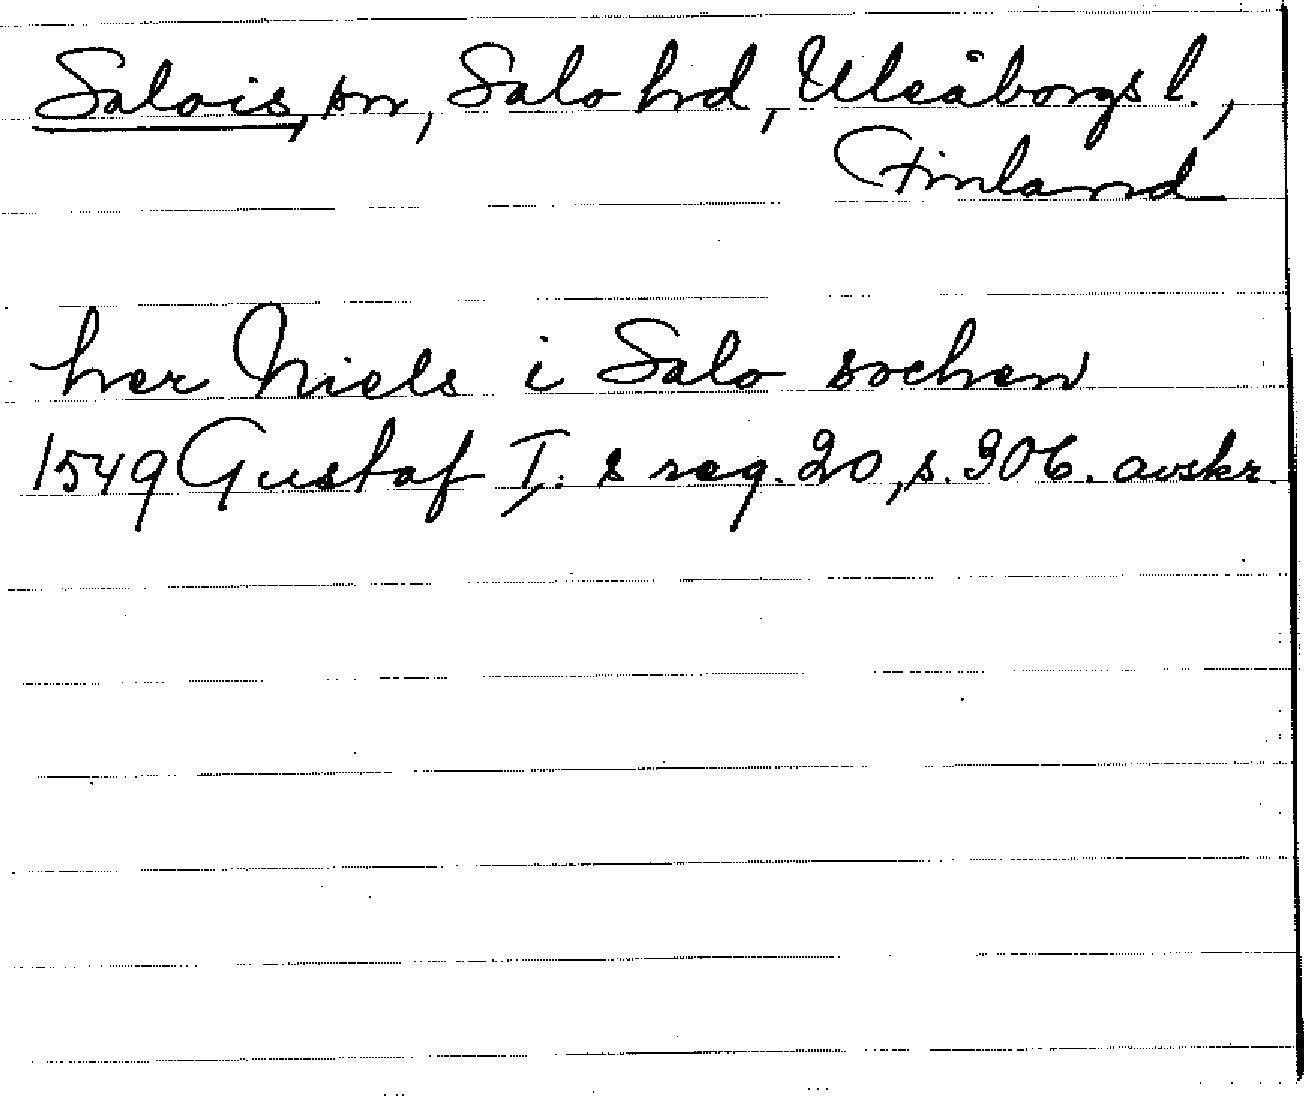 Salois, sn, Salo hrd, Uleåborgs l.,
Finland
her Niels i Salo sochen
1549 Gustaf I:s reg. 20, s. 306. avskr.